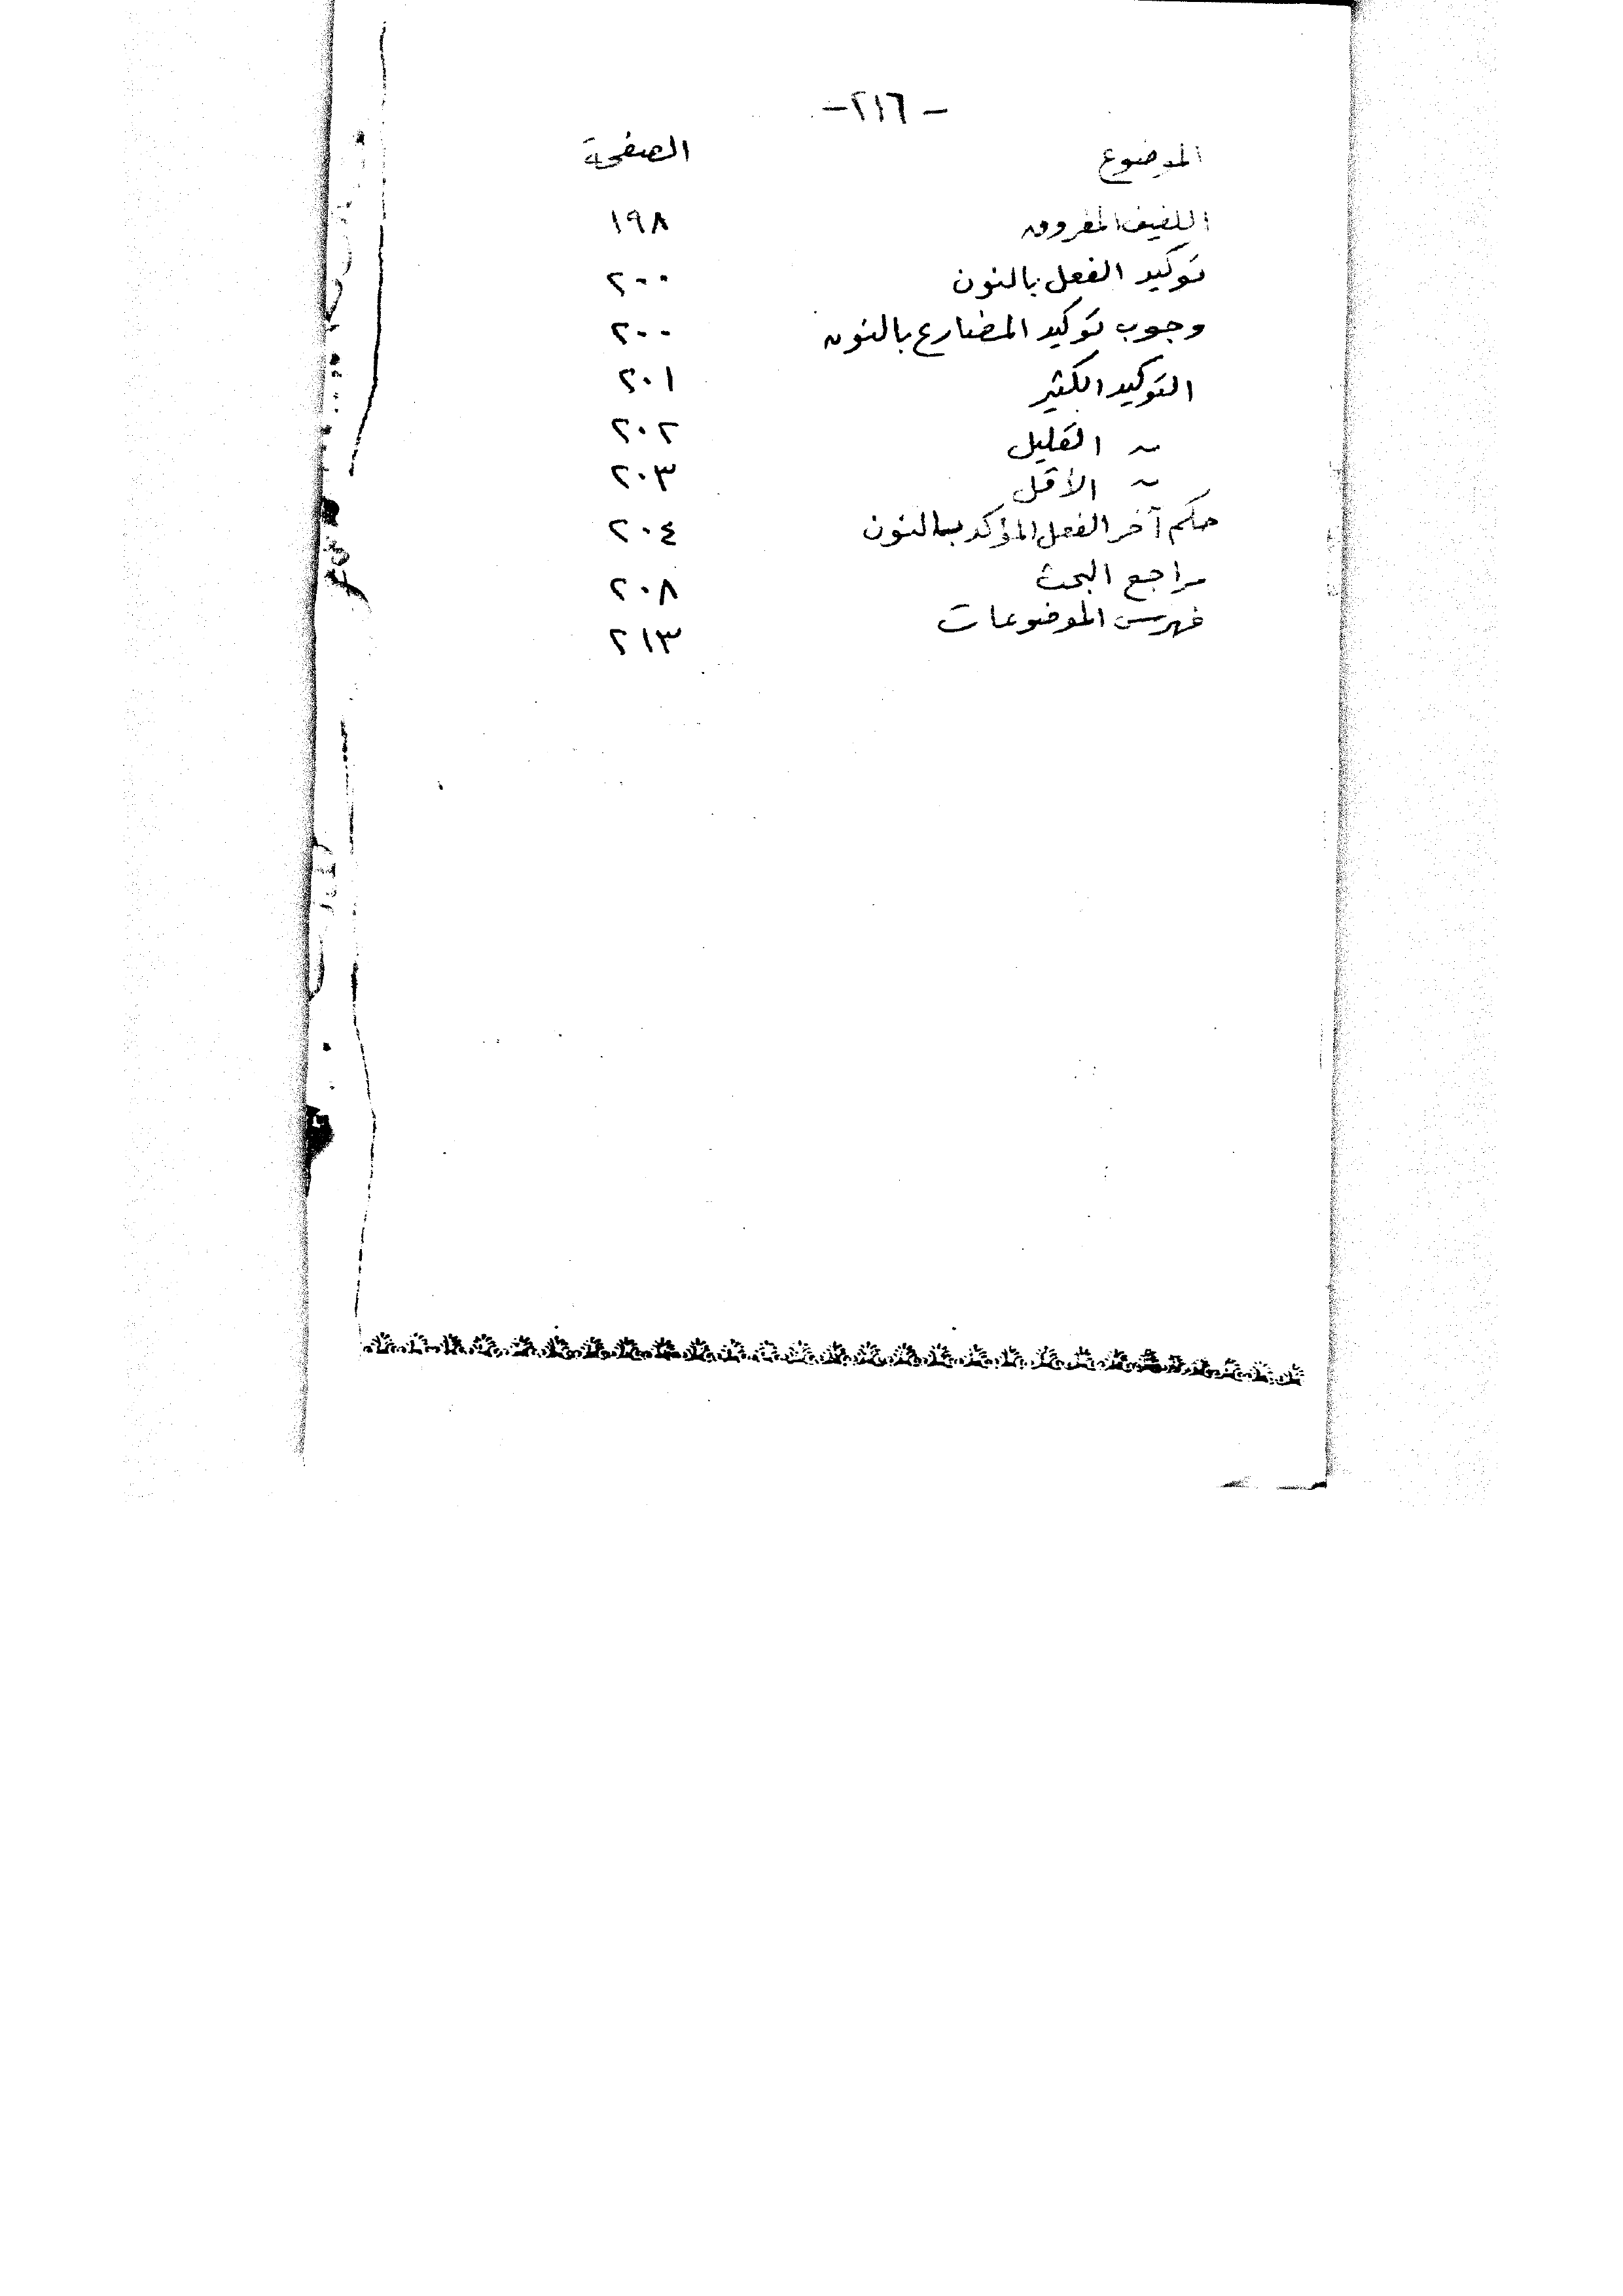 - ٢١٦ -
الموضوع الصفحة
اللفيف المفروق ١٩٨
توكيد الفعل بالنون ٢٠٠
وجوب توكيد المضارع بالنون ٢٠٠
التوكيد الكثير ٢٠١
~ القليل ٢٠٢
~ الأقل ٢٠٣
حكم آخر الفعل المؤكد بالنون ٢٠٤
مراجع البحث ٢٠٨
فهرس الموضوعات ٢١٣